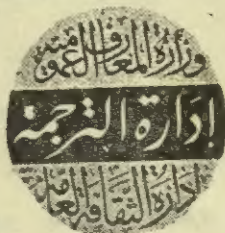 وزارة المعارف العمومية
إدارة الترجمة
إدارة الثقافة العامة